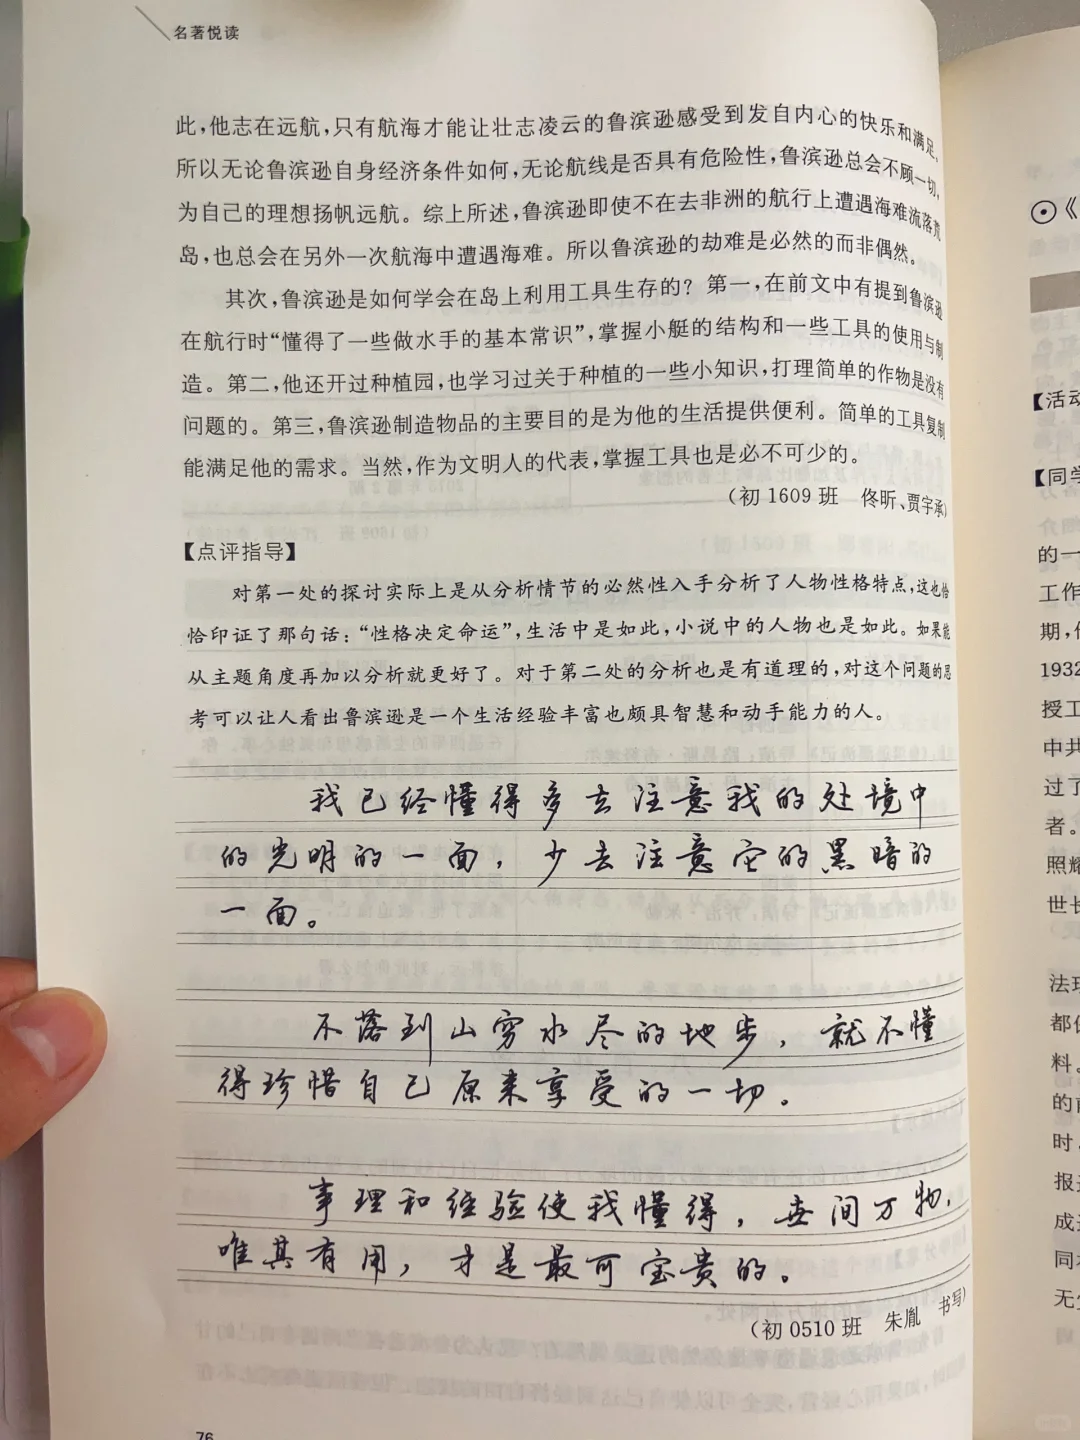 名著悦读
此,他志在远航,只有航海才能让壮志凌云的鲁滨逊感受到发自内心的快乐和满足,
所以无论鲁滨逊自身经济条件如何,无论航线是否具有危险性,鲁滨逊总会不顾一切,
为自己的理想扬帆远航。综上所述,鲁滨逊即使不在去非洲的航行上遭遇海难流落荒
岛,也总会在另外一次航海中遭遇海难。所以鲁滨逊的劫难是必然的而非偶然。
其次,鲁滨逊是如何学会在岛上利用工具生存的?第一,在前文中有提到鲁滨逊
在航行时“懂得了一些做水手的基本常识”,掌握小艇的结构和一些工具的使用与制
造。第二,他还开过种植园,也学习过关于种植的一些小知识,打理简单的作物是没有
问题的。第三,鲁滨逊制造物品的主要目的是为他的生活提供便利。简单的工具复制
能满足他的需求。当然,作为文明人的代表,掌握工具也是必不可少的。
(初 1609 班 佟昕、贾宇承)
【点评指导】
对第一处的探讨实际上是从分析情节的必然性入手分析了人物性格特点,这也恰
恰印证了那句话:“性格决定命运”,生活中是如此,小说中的人物也是如此。如果能
从主题角度再加以分析就更好了。对于第二处的分析也是有道理的,对这个问题的思
考可以让人看出鲁滨逊是一个生活经验丰富也颇具智慧和动手能力的人。
我已经懂得多去注意我的处境中
的光明的一面,少去注意它的黑暗的
一面。
不落到山穷水尽的地步,就不懂
得珍惜自己原来享受的一切。
事理和经验使我懂得,世间万物,
唯其有用,才是最可宝贵的。
(初 0510 班 朱胤 书写)
76
⊙《
【活动
【同学
的一
工作
期,
1932
授工
中共
过了
者。
照耀
世长
法理
都
料。
的
时,
报
成
同
无